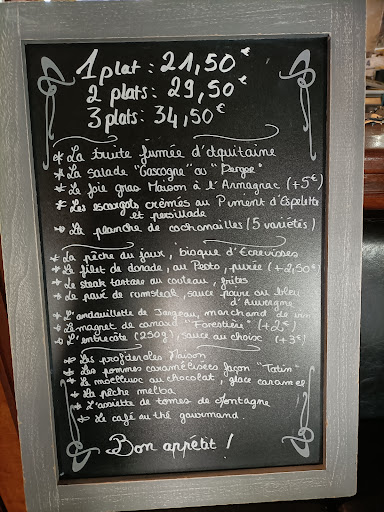 1 plat : 21,50€
2 plats : 29,50€
3 plats : 34,50€
* La truite fumée d'Aquitaine
* La salade "Gascogne" ou "Berger"
* Le foie gras Maison à l'Armagnac (+5€)
* Les escargots crémés au Piment d'Espelette
et persillade
* La planche de cochonailles (5 variétés)
* La pêche du jour, bisque d'Ecrevisses
* Le filet de dorade, au Pesto, purée (+2,50€)
* Le steak tartare au couteau, frites
* Le pavé de rumsteak, sauce poivre ou bleu
d'Auvergne
* L'andouillette de Jargeau, marchand de vin
* Le magret de canard "Forestière" (+2€)
* L'entrecôte (250g), sauce au choix (+3€)
* Les profiteroles Maison
* Les pommes caramélisées façon "Tatin"
* Le moelleux au chocolat, glace caramel
* La pêche melba
* L'assiette de tomes de Montagne
* Le café ou thé gourmand
Bon appétit !